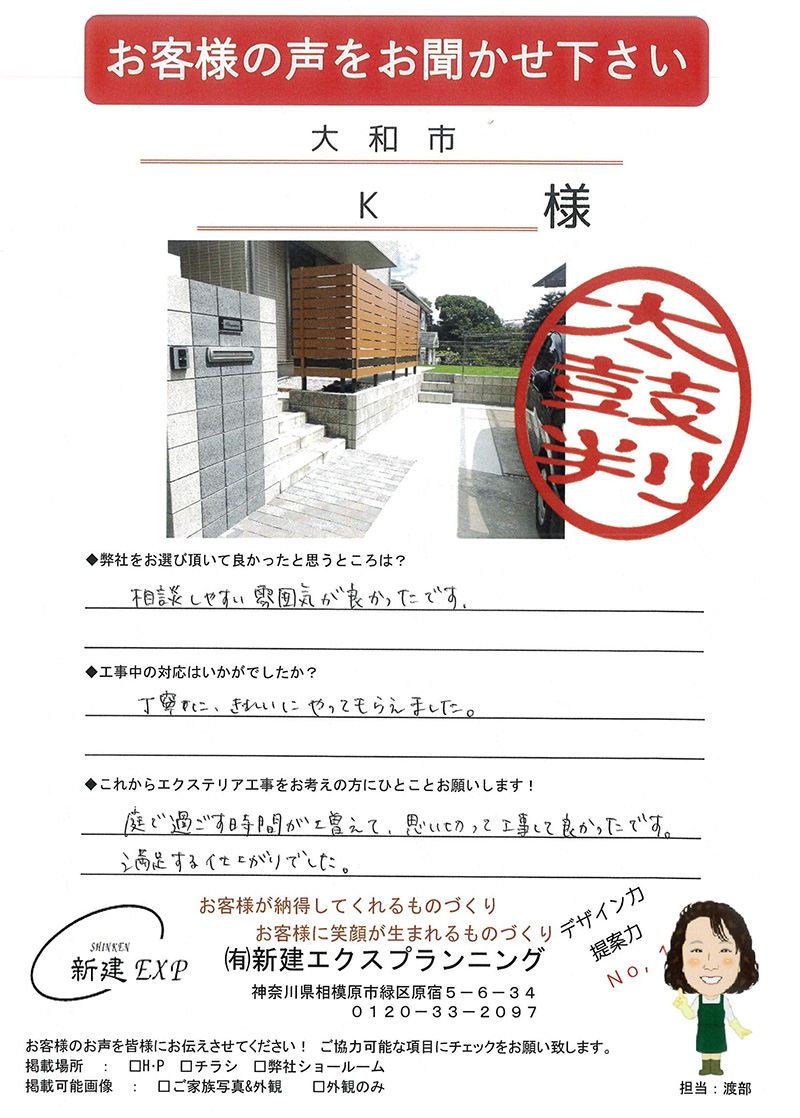 お客様の声をお聞かせ下さい
大和市
K 様
太鼓判
◆弊社をお選び頂いて良かったと思うところは？
相談しやすい雰囲気が良かったです。
◆工事中の対応はいかがでしたか？
丁寧に、きれいにやってもらえました。
◆これからエクステリア工事をお考えの方にひとことお願いします！
庭で過ごす時間が増えて、思い切って工事して良かったです。
満足する仕上がりでした。
お客様が納得してくれるものづくり
お客様に笑顔が生まれるものづくり
デザイン力
提案力
No,1
SHINKEN
新建EXP
㈲新建エクスプランニング
神奈川県相模原市緑区原宿５－６－３４
０１２０－３３－２０９７
お客様のお声を皆様にお伝えさせてください！ ご協力可能な項目にチェックをお願い致します。
掲載場所 ： □H･P □チラシ □弊社ショールーム
掲載可能画像 ： □ご家族写真&外観 □外観のみ
担当：渡部